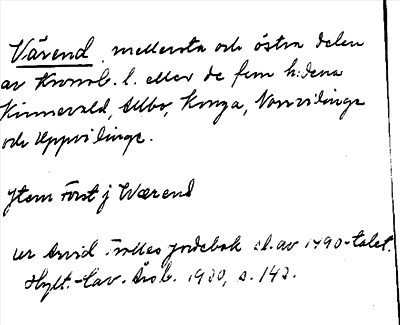 Värend, mellersta och östra delen
av Kronob. l. eller de fem h:dena
Kinnevald, Allbo, Konga, Norrvidinge
och Uppvidinge.
Jtem Först j Wærend
ur Arvid Trolles jordebok sl. av 1490-talet.
Hylt.-Cav. Årsb. 1930, s. 142.